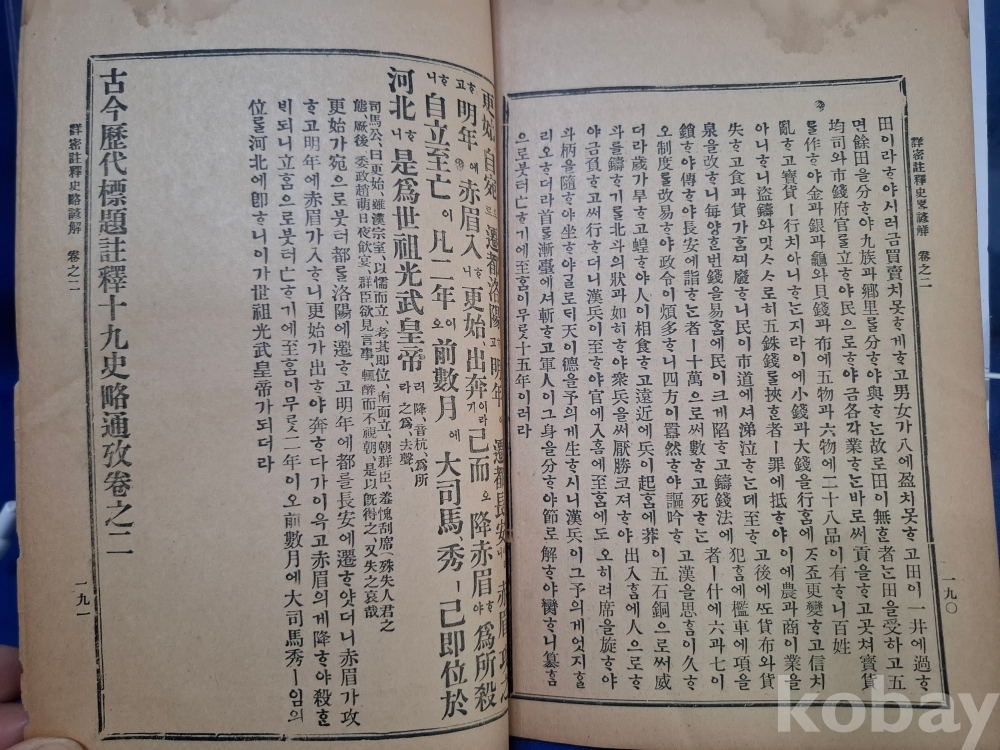 詳密註釋史畧諺解 卷之二
一九〇
田이라ᄒᆞ야시러금買賣치못ᄒᆞ게ᄒᆞ고男女가八에盈치못ᄒᆞ고田이一井에過ᄒᆞ
면餘田을分ᄒᆞ야九族과鄕里를分ᄒᆞ야與ᄒᆞᄂᆞᆫ故로田이無ᄒᆞᆫ者ᄂᆞᆫ田을受ᄒᆞ고五
均司와市錢府官을立ᄒᆞ야民으로ᄒᆞ야금各各業ᄒᆞᄂᆞᆫ바로써貢을ᄒᆞ고곳쳐寶貨
를作ᄒᆞ야金과銀과龜와貝錢과布에五物과六物에二十八品이有ᄒᆞ니百姓이
亂ᄒᆞ고寶貨ㅣ行치아니ᄒᆞᄂᆞᆫ지라이에小錢과大錢을行ᄒᆞᆷ에更變ᄒᆞ고信치
아니ᄒᆞ니盜鑄와밋ᄉᆞᄉᆞ로히五銖錢을挾ᄒᆞᆫ者ㅣ罪에抵ᄒᆞ야이에農과商이業을
失ᄒᆞ고食과貨가ᄒᆞᆷᄭᅴ廢ᄒᆞ니民이市道에셔涕泣ᄒᆞᄂᆞᆫ데至ᄒᆞ고後에ᄯᅩ貨布와貨
泉을改ᄒᆞ니每양ᄒᆞᆫ번錢을易ᄒᆞᆷ에民이크게陷ᄒᆞ고鑄錢法에犯ᄒᆞᆷ에檻車에項을
鎖ᄒᆞ야傳ᄒᆞ야長安에詣ᄒᆞᄂᆞᆫ者ㅣ十萬으로써數ᄒᆞ고死ᄒᆞᄂᆞᆫ者ㅣ什에六과七이
오制度를改易ᄒᆞ야政令이煩多ᄒᆞ니四方이囂然ᄒᆞ야謳吟ᄒᆞ고漢을思ᄒᆞᆷ이久ᄒᆞ
더라歲가旱ᄒᆞ고蝗ᄒᆞ야人이相食ᄒᆞ고遠近에兵이起ᄒᆞᆷ에莽이五石銅으로써威
斗를鑄ᄒᆞ기를北斗의狀과如히ᄒᆞ야衆兵을써厭勝코져ᄒᆞ야出入ᄒᆞᆷ에人으로ᄒᆞ
야금負ᄒᆞ고써行ᄒᆞ더니漢兵이至ᄒᆞ야官에入ᄒᆞᆷ에至ᄒᆞᆷ에도오히려席을旋ᄒᆞ야
斗柄을隨ᄒᆞ야坐ᄒᆞ야갈로되天이德을予의게生ᄒᆞ시니漢兵이그予의게엇지ᄒᆞ
리오ᄒᆞ더라首를漸臺에셔斬ᄒᆞ고軍人이그身을分ᄒᆞ야節로解ᄒᆞ야臠ᄒᆞ니簒ᄒᆞᆷ
으로붓터亡ᄒᆞ기에至ᄒᆞᆷ이무릇十五年이러라
更始、自宛으로遷都洛陽고明年에遷都長安
ᄒᆞ고明年에赤眉入ᄒᆞ니更始、出奔이라가己而오降赤眉ᄒᆞ야爲所殺
ᄒᆞ니自立至亡이凡二年이오前數月에大司馬、秀ㅣ己即位於
河北ᄒᆞ니是爲世祖光武皇帝러라 降、音杭、爲所之爲、去聲、
司馬公、曰更始、雖漢宗室、以懦而立、考其即位、南面立、朝群臣、羞愧刮席(殊失人君之
態、厥後、委政趙萌日夜飮宴、群臣欲見言事、輒醉而不視朝、是以旣得之、又失之哀哉
更始가宛으로붓터都를洛陽에遷ᄒᆞ고明年에都를長安에遷ᄒᆞ얏더니赤眉가攻
ᄒᆞ고明年에赤眉가入ᄒᆞ니更始가出ᄒᆞ야奔ᄒᆞ다가이윽고赤眉의게降ᄒᆞ야殺ᄒᆞᆫ
비되니立ᄒᆞᆷ으로붓터亡ᄒᆞ기에至ᄒᆞᆷ이무릇二年이오前數月에大司馬秀ㅣ임의
位를河北에即ᄒᆞ니이가世祖光武皇帝가되더라
古今歷代標題註釋十九史略通攷卷之二
詳密註釋史略諺解 卷之二
一九一
kobay